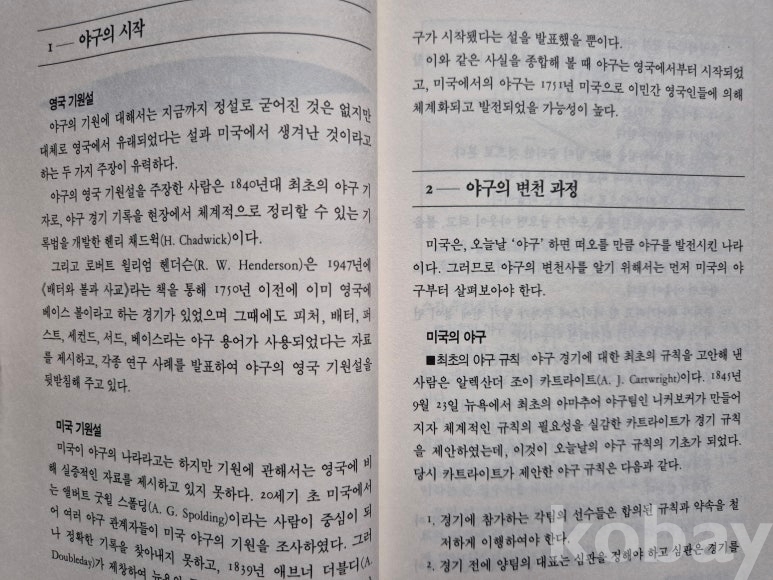 1 — 야구의 시작
영국 기원설
야구의 기원에 대해서는 지금까지 정설로 굳어진 것은 없지만
대체로 영국에서 유래되었다는 설과 미국에서 생겨난 것이라고
하는 두 가지 주장이 유력하다.
야구의 영국 기원설을 주장한 사람은 1840년대 최초의 야구 기
자로, 야구 경기 기록을 현장에서 체계적으로 정리할 수 있는 기
록법을 개발한 헨리 채드윅(H. Chadwick)이다.
그리고 로버트 윌리엄 헨더슨(R. W. Henderson)은 1947년에
《배터와 볼과 사교》라는 책을 통해 1750년 이전에 이미 영국에
베이스 볼이라고 하는 경기가 있었으며 그때에도 피처, 배터, 퍼
스트, 세컨드, 서드, 베이스라는 야구 용어가 사용되었다는 자료
를 제시하고, 각종 연구 사례를 발표하여 야구의 영국 기원설을
뒷받침해 주고 있다.
미국 기원설
미국이 야구의 나라라고는 하지만 기원에 관해서는 영국에 비
해 실증적인 자료를 제시하고 있지 못하다. 20세기 초 미국에서
는 앨버트 굿윌 스폴딩(A. G. Spolding)이라는 사람이 중심이 되
어 여러 야구 관계자들이 미국 야구의 기원을 조사하였다. 그러
나 정확한 기록을 찾아내지 못하고, 1839년 애브너 더블디(A.
Doubleday)가 제창하여 뉴욕의
구가 시작됐다는 설을 발표했을 뿐이다.
이와 같은 사실을 종합해 볼 때 야구는 영국에서부터 시작되었
고, 미국에서의 야구는 1751년 미국으로 이민간 영국인들에 의해
체계화되고 발전되었을 가능성이 높다.
2 — 야구의 변천 과정
미국은, 오늘날 ‘야구’ 하면 떠오를 만큼 야구를 발전시킨 나라
이다. 그러므로 야구의 변천사를 알기 위해서는 먼저 미국의 야
구부터 살펴보아야 한다.
미국의 야구
■최초의 야구 규칙 야구 경기에 대한 최초의 규칙을 고안해 낸
사람은 알렉산더 조이 카트라이트(A. J. Cartwright)이다. 1845년
9월 23일 뉴욕에서 최초의 아마추어 야구팀인 니커보커가 만들어
지자 체계적인 규칙의 필요성을 실감한 카트라이트가 경기 규칙
을 제안하였는데, 이것이 오늘날의 야구 규칙의 기초가 되었다.
당시 카트라이트가 제안한 야구 규칙은 다음과 같다.
1. 경기에 참가하는 각팀의 선수들은 합의된 규칙과 약속을 철
저하게 이행하여야 한다.
2. 경기 전에 양팀의 대표는 심판을 정해야 하고 심판은 경기를
kobay